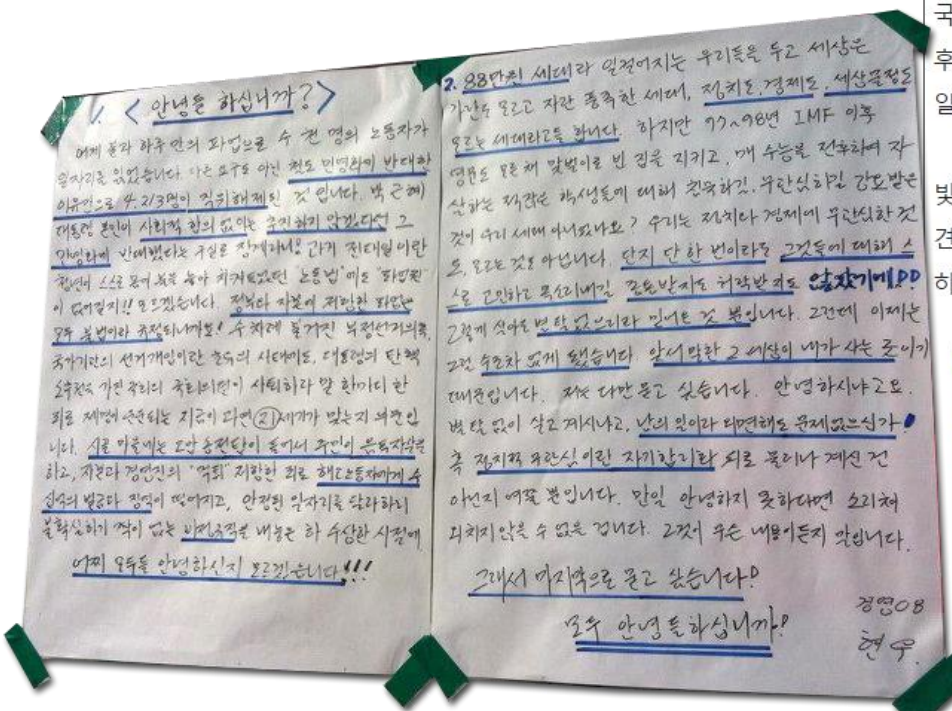 1. < 안녕들 하십니까? >
어제 불과 하루 만의 파업으로 수 천 명의 노동자가
일자리를 잃었습니다. 다른 요구도 아닌 철도 민영화에 반대한
이유만으로 4,213명이 직위해제된 것입니다. 박근혜
대통령 본인이 사회적 합의 없이는 추진하지 않겠다던 그
민영화에 반대했다는 구실로 징계라니! 과거 전태일이란
청년이 스스로 몸에 불을 놓아 치켜들었던 '노동법'에도 "파업권"
이 없어질지!! 모르겠습니다. 정부와 자본에 저항한 파업은
모두 불법이라 규정되니까요! 수차례 불거진 부정선거의혹,
국가기관의 선거개입이란 초유의 사태에도, 대통령의 탄핵
소추권을 가진 국회의 국회의원이 사퇴하라 말 한마디 한
죄로 제명이 운운되는 지금이 과연 21세기가 맞는지 의문입
니다. 시골 마을에는 고압 송전탑이 들어서 주민이 음독자살을
하고, 자본과 경영진의 '먹튀' 저항한 죄로 해고노동자에게 수
십억의 벌금과 징역이 떨어지고, 안정된 일자리를 달라하니
불확실하기 짝이 없는 비정규직을 내놓은 하 수상한 시절에
어찌 모두들 안녕하신지 모르겠습니다!!!
2. 88만원 세대라 일컬어지는 우리들을 두고 세상은
가난도 모르고 자란 풍족한 세대, 정치도, 경제도, 세상물정도
모르는 세대라고들 합니다. 하지만 97~98년 IMF 이후
영문도 모른 채 맞벌이로 빈 집을 지키고, 매 수능을 전후하여 자
살하는 적잖은 학생들에 대해 침묵하길, 무관심하길 강요받은
것이 우리 세대 아니었나요? 우리는 정치와 경제에 무관심한 것
도, 모르는 것도 아닙니다. 단지 단 한 번이라도 그것들에 대해 스
스로 고민하고 목소리내길 요구받지도 허락받지도 않았기에!!
그렇게 살아도 별 탈 없으리라 믿어온 것 뿐입니다. 그런데 이제는
그럴 수조차 없게 됐습니다 앞서 말한 그 세상이 내가 사는 곳이기
때문입니다. 저는 다만 묻고 싶습니다. 안녕하시냐고요.
별 탈 없이 살고 계시냐고, 남의 일이라 외면해도 문제없으신가!
혹 정치적 무관심이란 자기합리화 뒤로 물러나 계신 건
아닌지 여쭐 뿐입니다. 만일 안녕하지 못하다면 소리쳐
외치지 않을 수 없을 겁니다. 그것이 무슨 내용이든지 말입니다.
그래서 마지막으로 묻고 싶습니다!
모두 안녕들하십니까!
경영08
현우.
국
후
일
빛
견
하